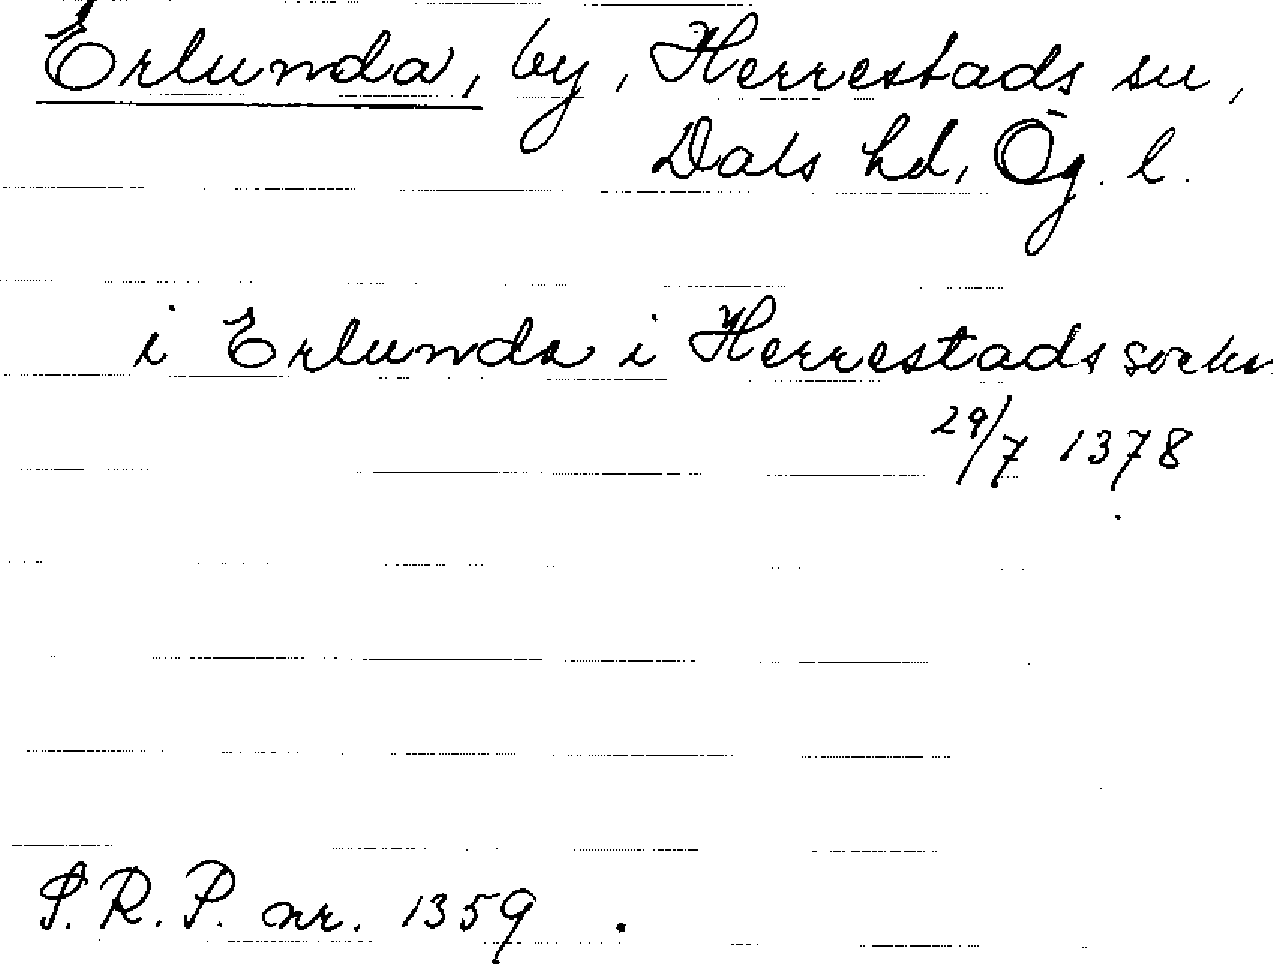 Erlunda, by, Herrestads sn,
Dals hd, Ög. l.
i Erlunda i Herrestads sockn
29/7 1378
S.R.P. nr. 1359.